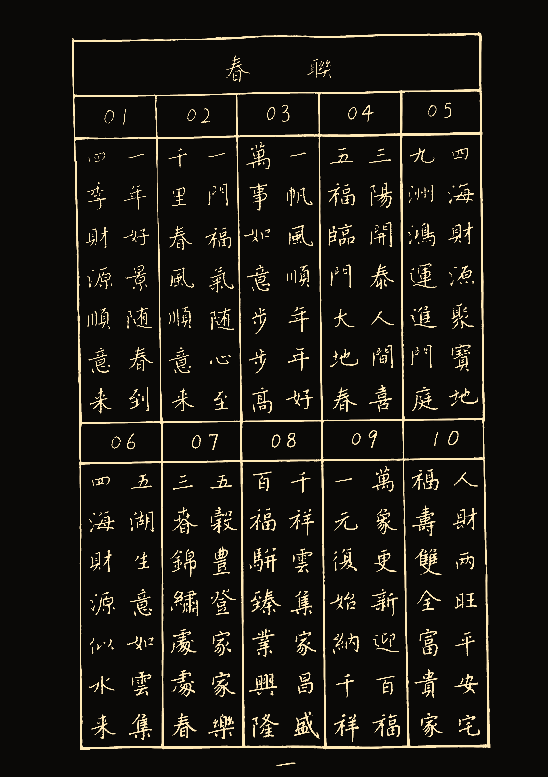 春聯
01
一年好景随春到
四季財源順意来
02
一門福氣随心至
千里春風順意来
03
一帆風順年年好
萬事如意步步髙
04
三陽開泰人間喜
五福臨門大地春
05
四海財源聚寶地
九洲鴻運進門庭
06
五湖生意如雲集
四海財源似水来
07
五穀豊登家家樂
三春錦繡處處春
08
千祥雲集家昌盛
百福駢臻業興隆
09
萬象更新迎百福
一元復始納千祥
10
人財两旺平安宅
福壽雙全富貴家
一